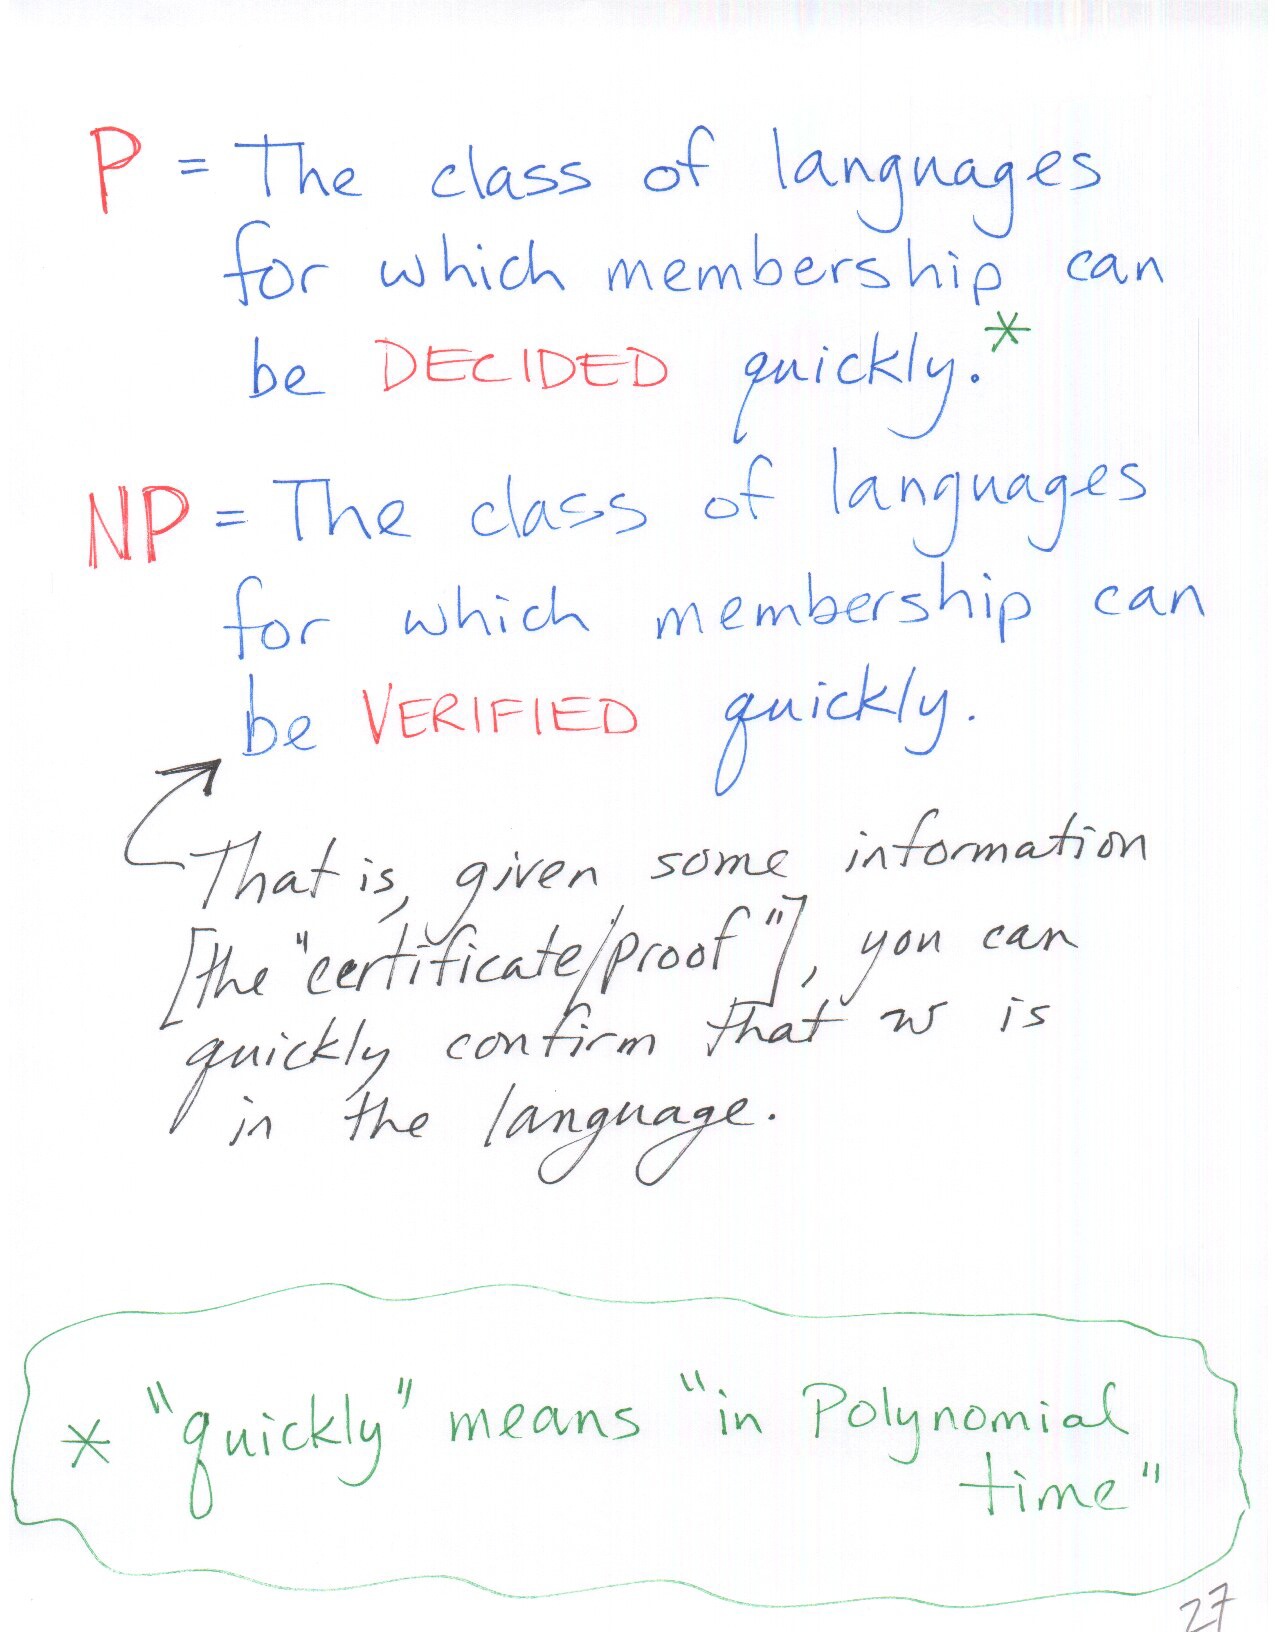 P = The class of languages
for which membership can
be DECIDED quickly.*
NP = The class of languages
for which membership can
be VERIFIED quickly.
That is, given some information
[the "certificate/proof"], you can
quickly confirm that w is
in the language.
* "quickly" means "in Polynomial
time"
27